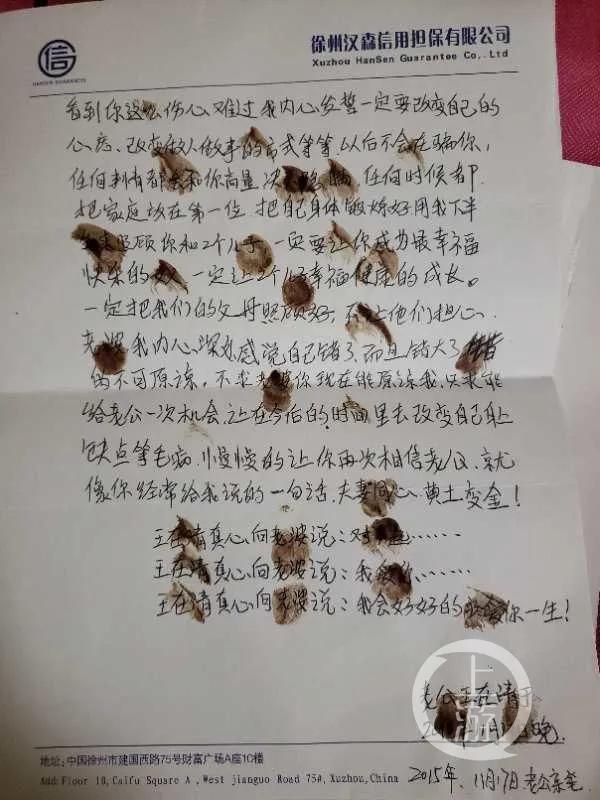 信
HANSEN GUARANTEE
徐州汉森信用担保有限公司
Xuzhou HanSen Guarantee Co., Ltd
看到你这么伤心难过我内心发誓一定要改变自己的
心态、改变做人做事的方式等等,以后不会在骗你,
任何事情都会和你商量 决 任何时候都
把家庭放在第一位 把自己身体锻炼好用我下半
照顾你和2个儿子 一定要让你成为最幸福
快乐的 一定让2个儿子幸福健康的成长。
一定把我们的父母照顾好,不让他们担心、
老婆 我内心深处感觉自己错了 而且错大了
不可原谅,不求老婆你现在能原谅我,只求能
给老公一次机会,让在今后的时间里去改变自己身上
缺点等毛病,慢慢的让你再次相信老公,就
像你经常给我说的一句话,夫妻同心、黄土变金!
王在清真心向老婆说:对不起……
王在清真心向老婆说:我爱你……
王在清真心向老婆说:我会好好的 你一生!
老公王在清于
晚
2015年、11月17日 老公亲笔
地址:中国徐州市建国西路75号财富广场A座10楼
Add:Floor 10,Caifu Square A, West jianguo Road 75#, Xuzhou,China
上游